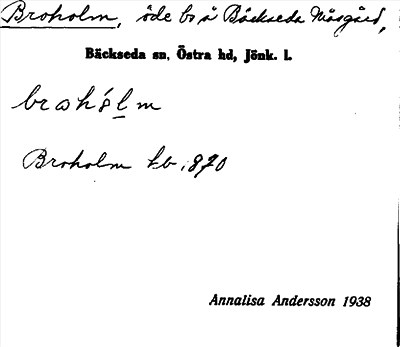 Broholm, öde bs å Bäckseda Måsgård,
Bäckseda sn, Östra hd, Jönk. l.
brohólm
Broholm kb. 1870
Annalisa Andersson 1938